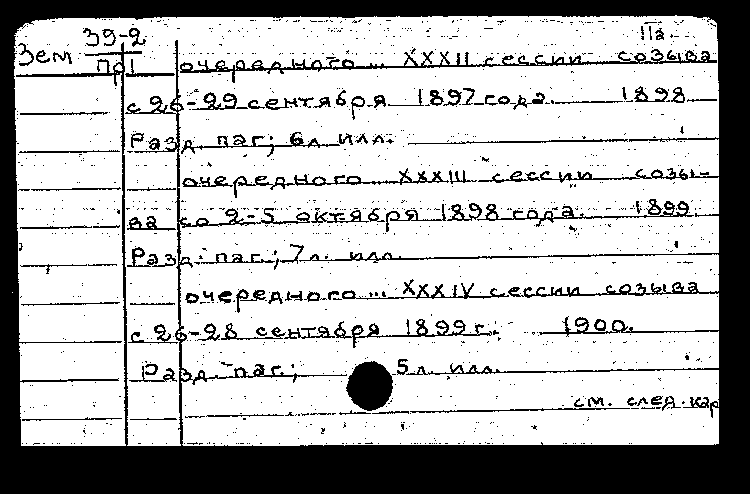 11а.
Зем 39-2
пр1 очередного... XXXII сессии созыва
с 26-29 сентября 1897 года. 1898
Разд. паг; 6л илл.
очередного... XXXIII сессии созы-
ва со 2-5 октября 1898 года. 1899
Разд. паг.; 7л. илл.
очередного... XXXIV сессии созыва
с 26-28 сентября 1899 г. 1900.
Разд. паг.; 5л. илл.
см. след. кар